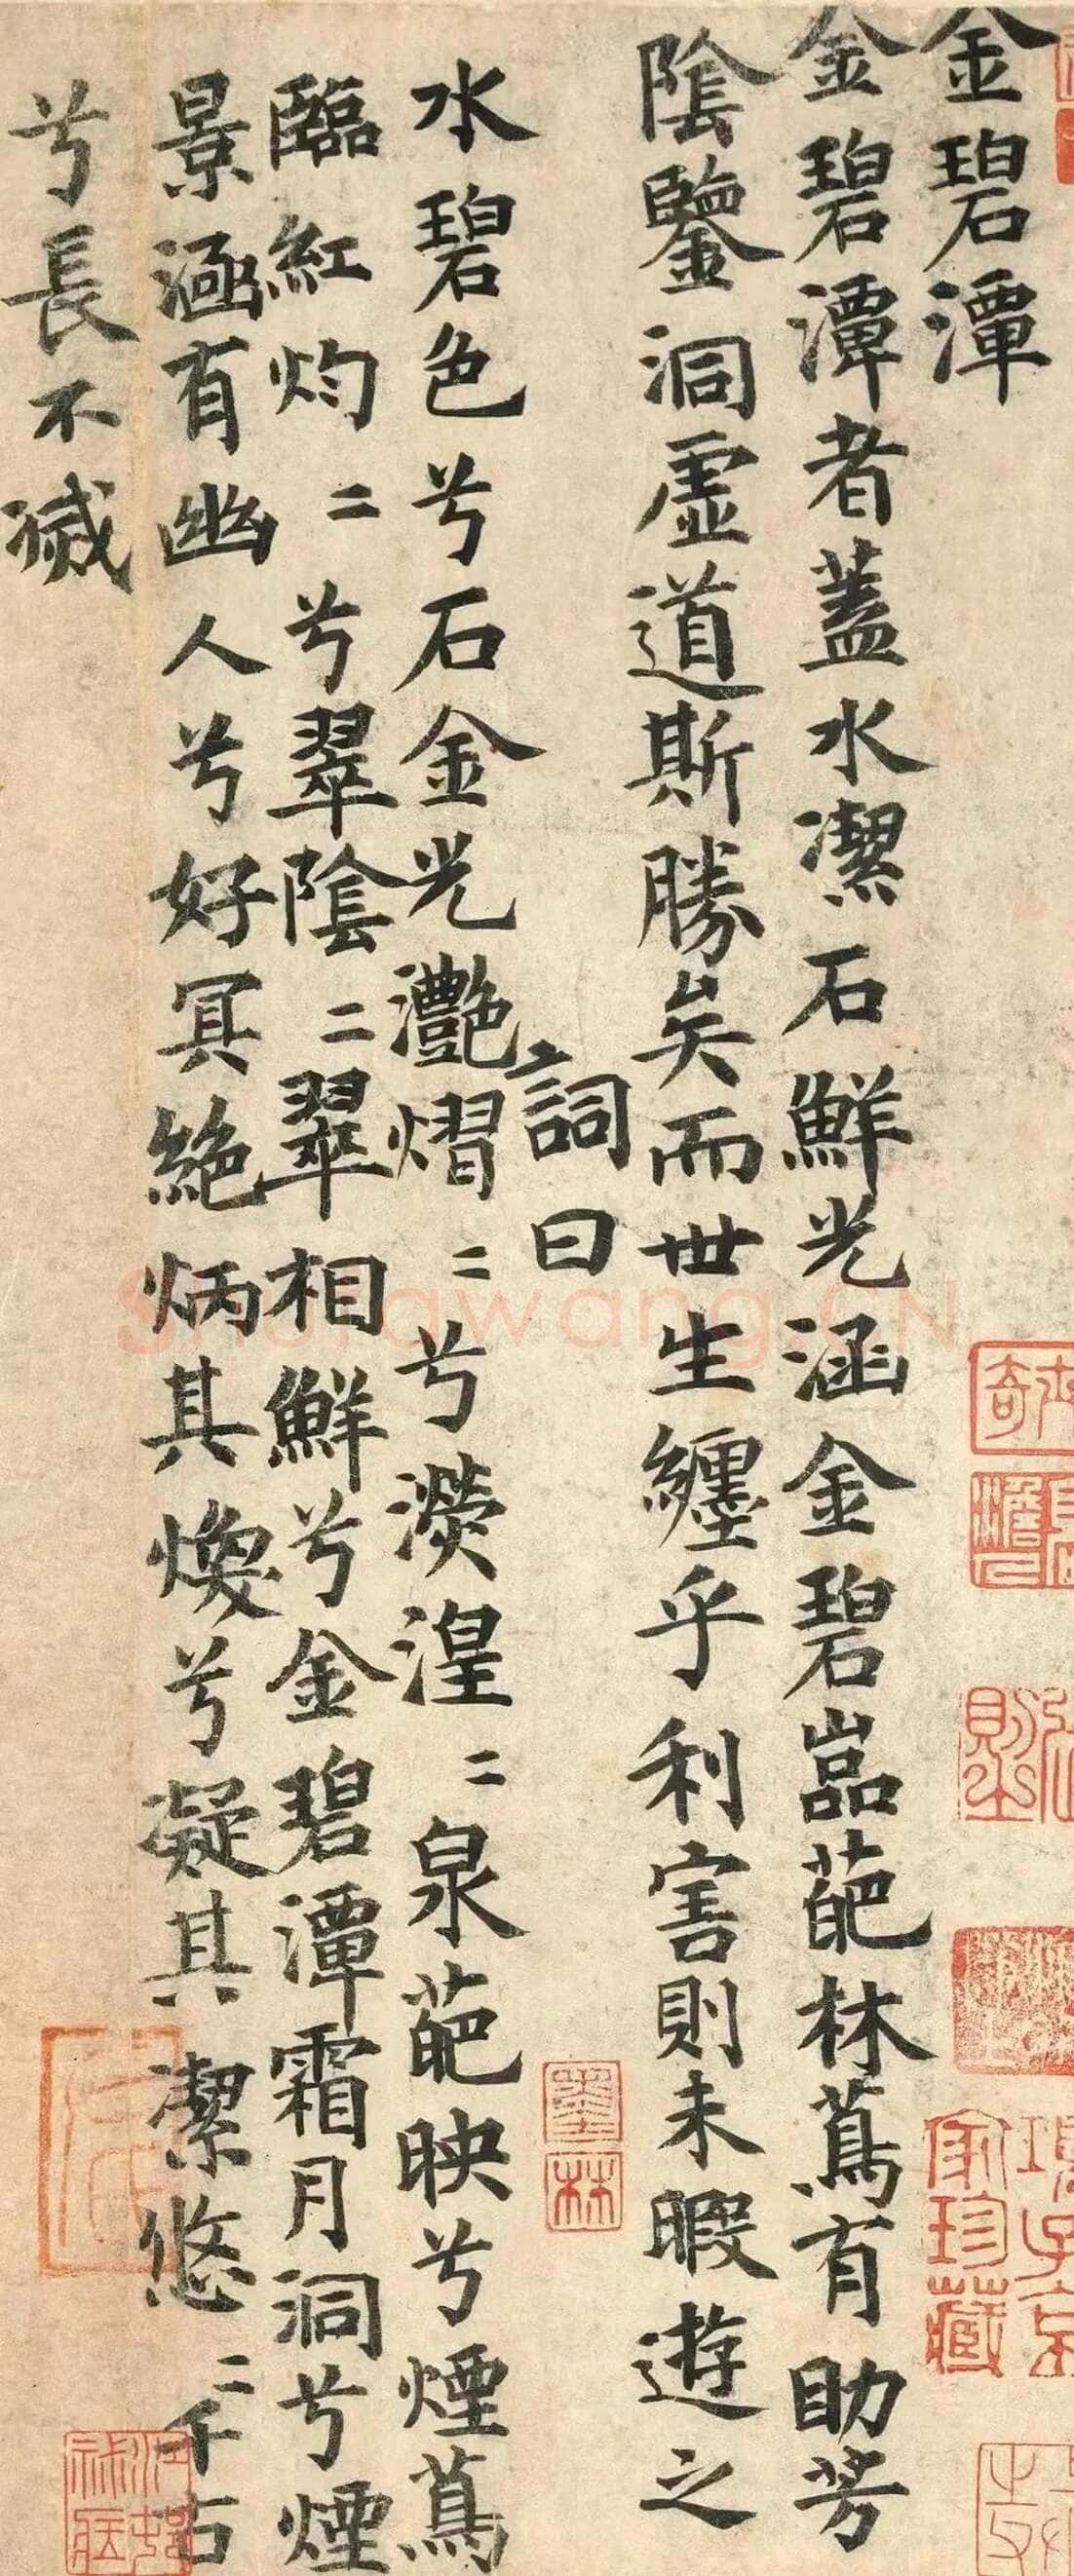 金碧潭
金碧潭者蓋水潔石鮮光涵金碧嵓葩林蔦有助芳
陰鑒洞虛道斯勝矣而世生纏乎利害則未暇遊之
詞曰
水碧色兮石金光灔熠〻兮濙湟〻泉葩映兮煙蔦
臨紅灼〻兮翠陰〻翠相鮮兮金碧潭霜月洞兮煙
景涵有幽人兮好冥絕炳其煥兮凝其潔悠〻千古
兮長不滅
墨林
家珍藏
Shufawang.CN